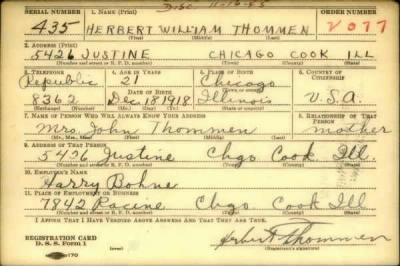 Disc. 11-16-45
SERIAL NUMBER 1. NAME (Print) ORDER NUMBER
435 HERBERT WILLIAM THOMMEN V077
(First) (Middle) (Last)
2. ADDRESS (Print)
5426 JUSTINE CHICAGO COOK ILL
(Number and street or R. F. D. number) (Town) (County) (State)
3. TELEPHONE 4. AGE IN YEARS 5. PLACE OF BIRTH 6. COUNTRY OF CITIZENSHIP
Republic 21 Chicago
DATE OF BIRTH (Town or county)
8362 Dec 18 1918 Illinois U.S.A.
7. NAME OF PERSON WHO WILL ALWAYS KNOW YOUR ADDRESS 8. RELATIONSHIP OF THAT PERSON
Mrs. John Thommen mother
(Mr., Mrs., Miss) (First) (Middle) (Last)
9. ADDRESS OF THAT PERSON
5426 Justine Chgo Cook Ill.
(Number and street or R. F. D. number) (Town) (County) (State)
10. EMPLOYER'S NAME
Harry Bohne
11. PLACE OF EMPLOYMENT OR BUSINESS
7842 Racine Chgo Cook Ill
(Number and street or R. F. D. number) (Town) (County) (State)
I AFFIRM THAT I HAVE VERIFIED ABOVE ANSWERS AND THAT THEY ARE TRUE.
REGISTRATION CARD
D. S. S. Form 1
Herbert Thommen